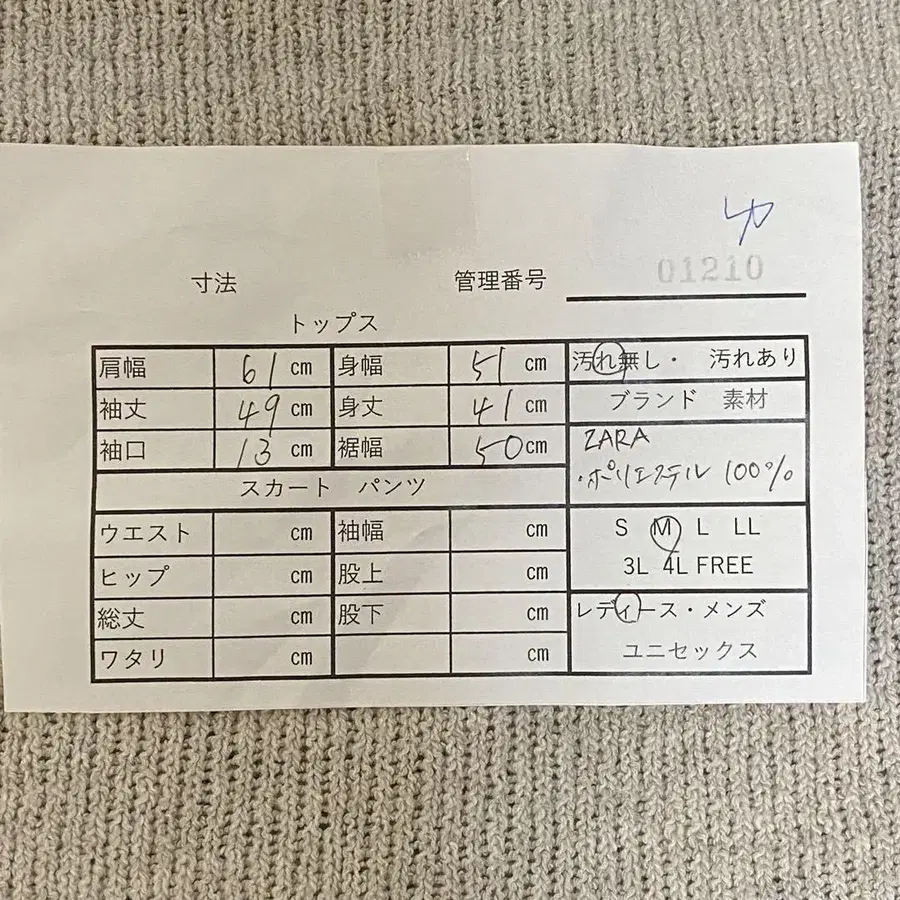 カ
01210
寸法 管理番号
トップス
肩幅 61 cm 身幅 51 cm 汚れ無し・ 汚れあり
袖丈 49 cm 身丈 41 cm ブランド 素材
袖口 13 cm 裾幅 50 cm ZARA
・ポリエステル 100%
スカート パンツ
ウエスト cm 袖幅 cm S M L LL
ヒップ cm 股上 cm 3L 4L FREE
総丈 cm 股下 cm レディース・メンズ
ワタリ cm cm ユニセックス